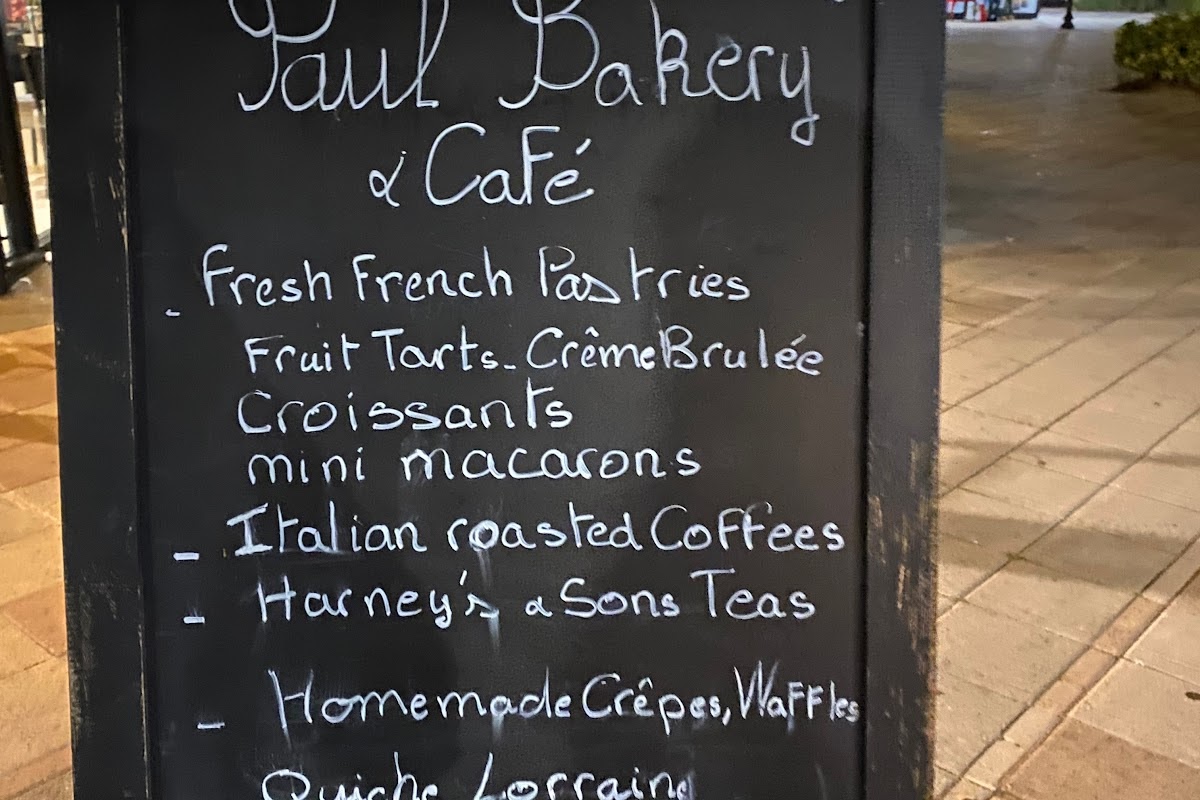 Paul Bakery
& Café
- Fresh French Pastries
Fruit Tarts - Crême Brulée
Croissants
mini macarons
- Italian roasted Coffees
- Harney's & Sons Teas
- Homemade Crêpes, Waffles
Quiche Lorraine